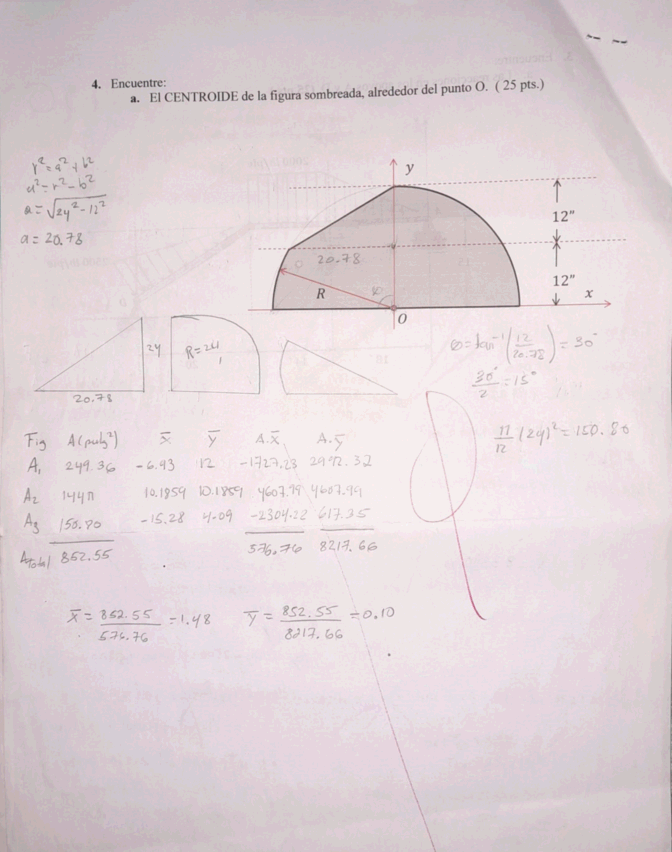 4. Encuentre:
a. El CENTROIDE de la figura sombreada, alrededor del punto O. ( 25 pts.)
r² = a² + b²
a² = r² - b²
a = √24² - 12²
a = 20.78
y
12"
12"
20.78
R
x
O
24
20.78
R=24
= tan⁻¹(12/20.78) = 30°
30°/2 = 15°
π/12 (24)² = 150.80
Fig A(pulg²) x̄ ȳ A.x̄ A.ȳ
A₁ 249.36 -6.93 12 -1727.23 2992.32
A₂ 144π 10.1859 10.1859 4607.99 4607.99
A₃ 150.80 -15.28 4.09 -2304.22 617.35
Atotal 852.55 576.76 8217.66
x̄ = 852.55/576.76 = 1.48 ȳ = 852.55/8217.66 = 0.10